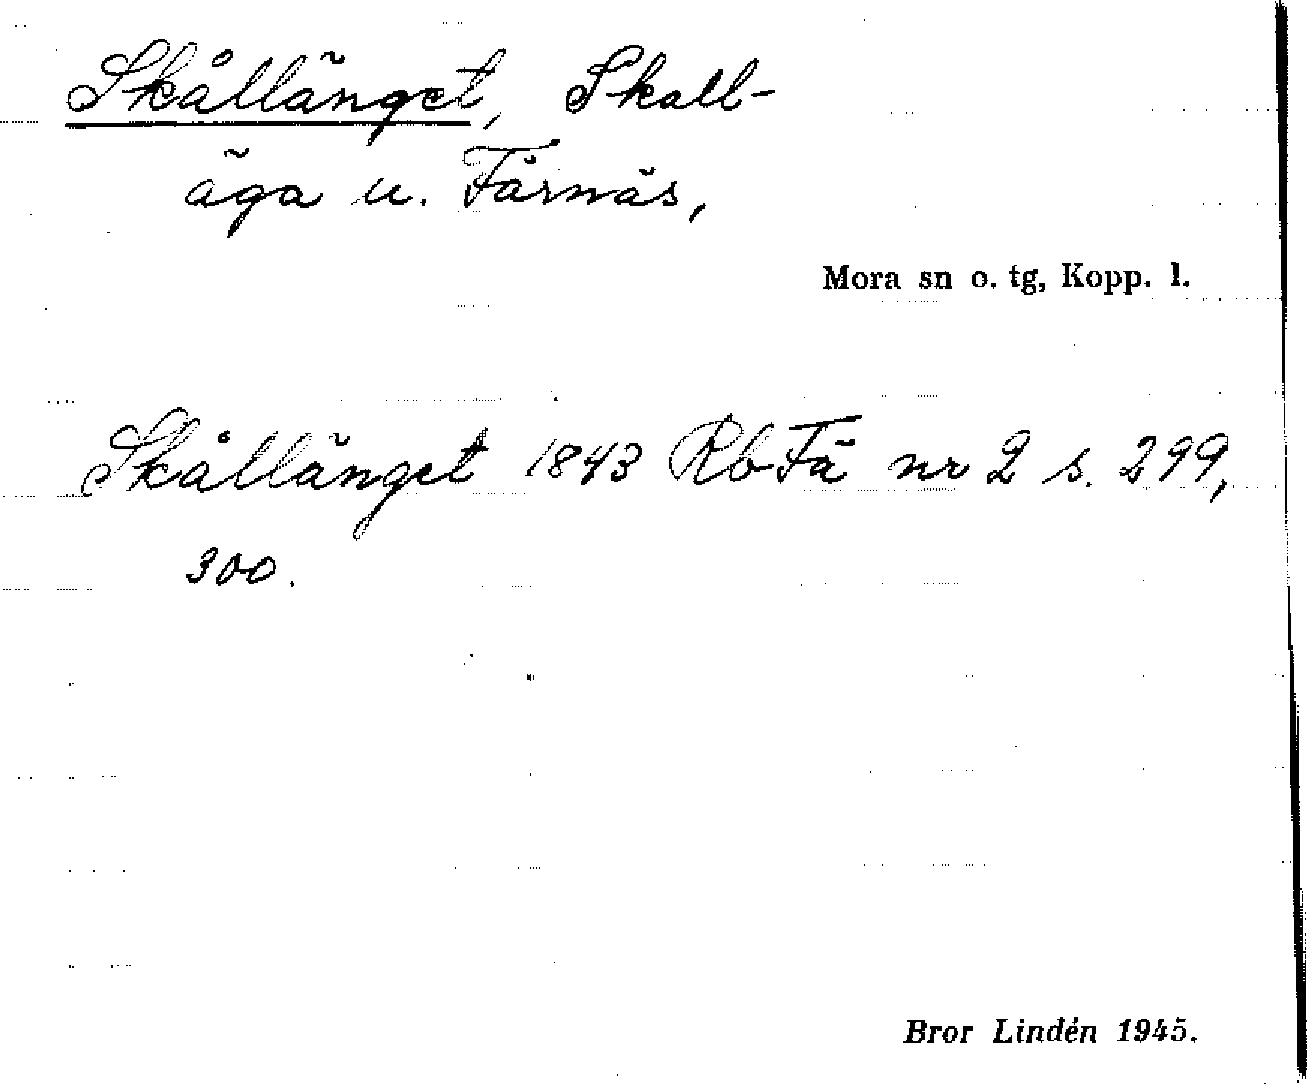 Skållänget, Skall-
äga u. Färnäs,
Mora sn o. tg, Kopp. l.
Skållänget 1843 Rb Fä nr 2 s. 299,
300.
Bror Lindén 1945.